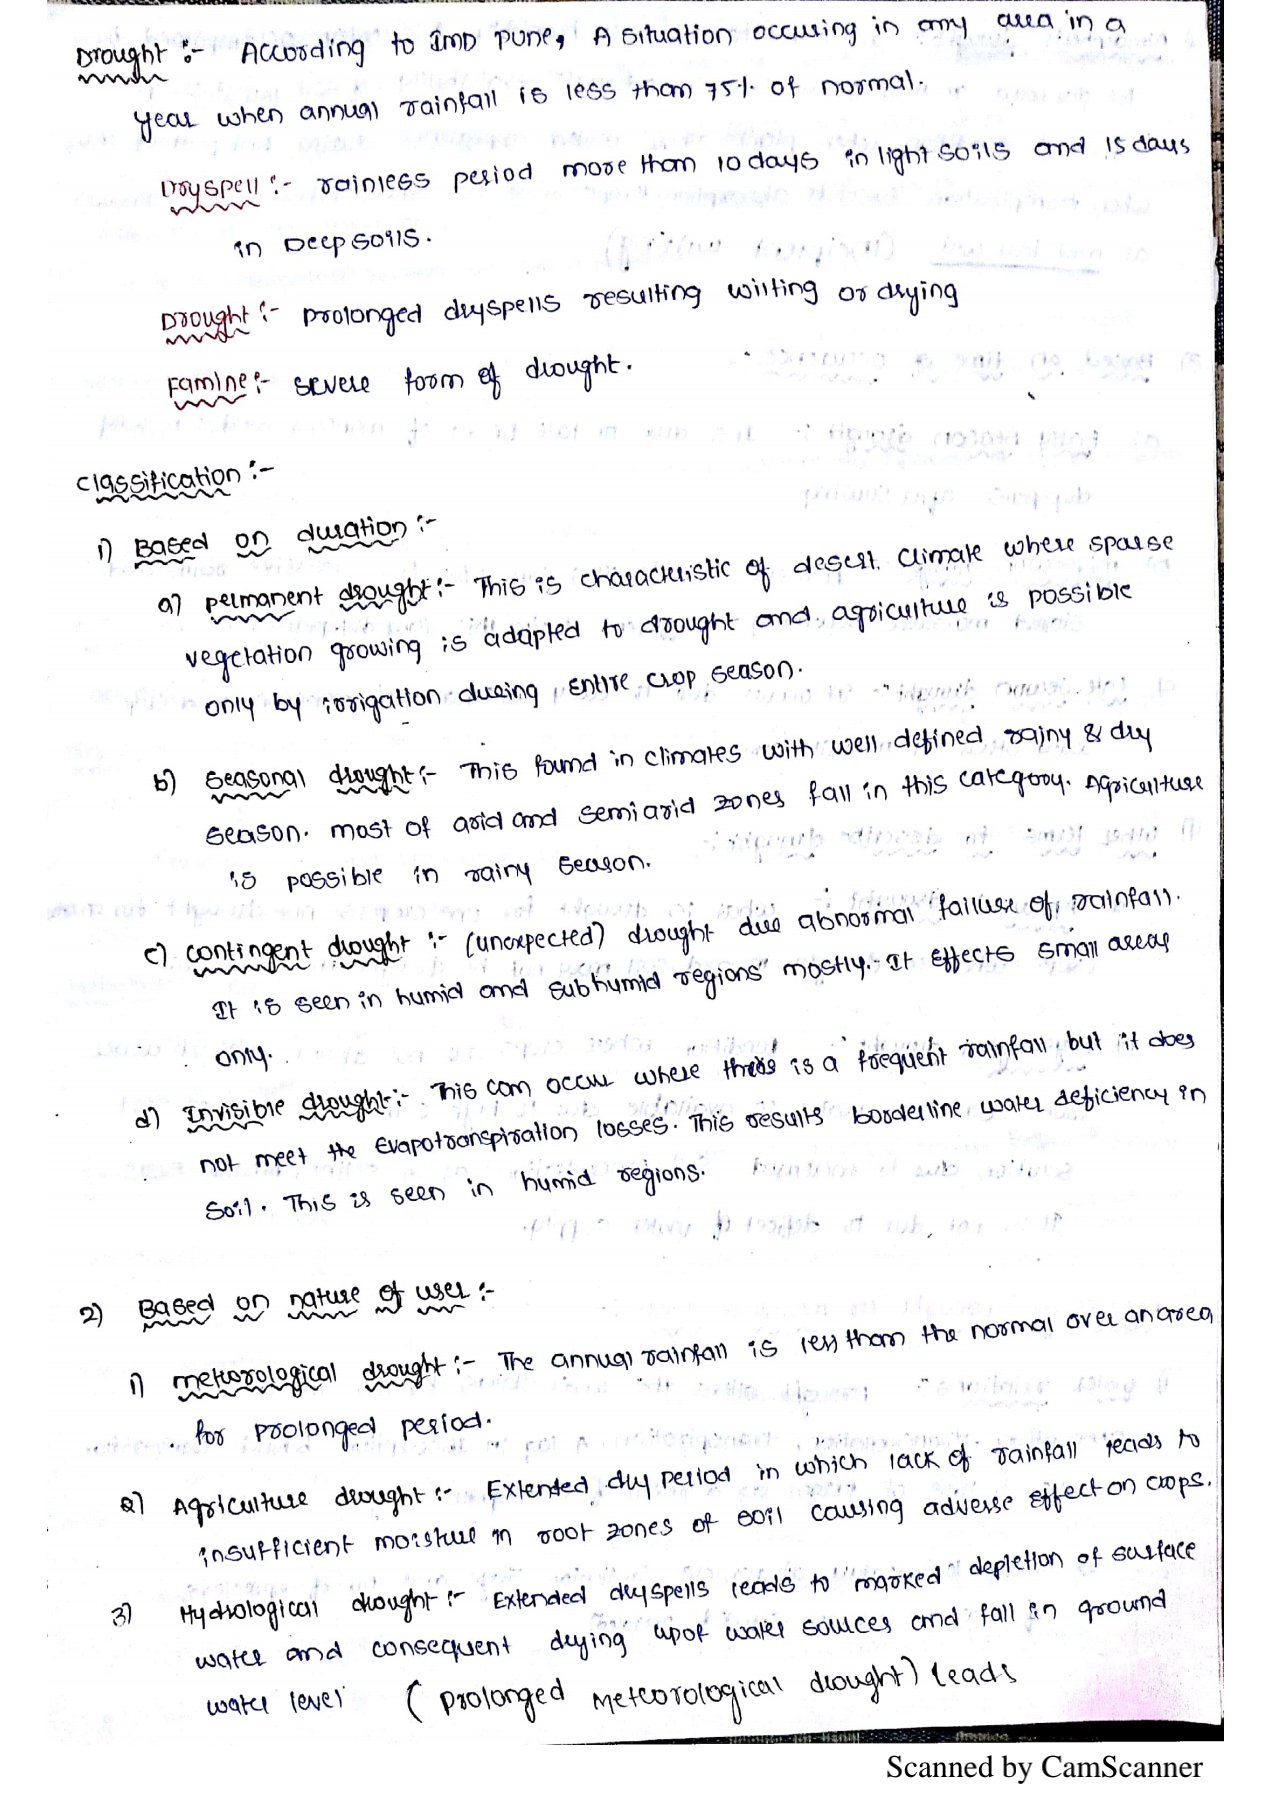 Drought :- According to IMD Pune, A situation occuring in any area in a
year when annual rainfall is less than 75% of normal.
Dryspell :- rainless period more than 10 days in light soils and 15 days
in Deep soils.
Drought :- prolonged dryspells resulting wilting or drying
Famine :- severe form of drought.
classification :-
1) Based on duration :-
a) permanent drought :- This is characteristic of desert climate where sparse
vegetation growing is adapted to drought and agriculture is possible
only by irrigation during entire crop season.
b) seasonal drought :- This found in climates with well defined rainy & dry
season. most of arid and semi arid zones fall in this category. Agriculture
is possible in rainy season.
c) contingent drought :- (unexpected) drought due abnormal failure of rainfall.
It is seen in humid and subhumid regions mostly. It effects small areas
only.
d) Invisible drought :- This can occur where there is a frequent rainfall but it does
not meet the Evapotranspiration losses. This results borderline water deficiency in
soil. This is seen in humid regions.
2) Based on nature of user :-
1) meteorological drought :- The annual rainfall is less than the normal over an area
for prolonged period.
2) Agriculture drought :- Extended dry period in which lack of rainfall leads to
insufficient moisture in root zones of soil causing adverse effect on crops.
3) Hydrological drought :- Extended dryspells leads to marked depletion of surface
water and consequent drying up of water sources and fall in ground
water level (prolonged meteorological drought) leads
Scanned by CamScanner